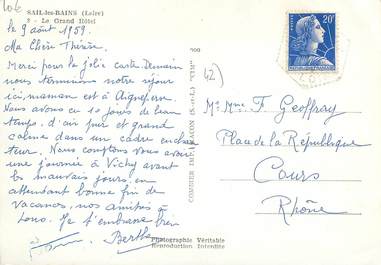 SAIL-les-BAINS (Loire)
8 - Le Grand Hôtel
le 9 août 1959.
Ma Chère Thérèse,
Merci pour ta jolie carte. Demain
nous terminons notre séjour
ici maman est à Aigueperse.
Nous avons eu 10 jours de beau
temps, d'air pur et grand
calme dans un cadre enchan
teur. Nous comptons vous avoir
une journée à Vichy avant
les mauvais jours, en
attendant bonne fin de
vacances, nos amitiés à
tous. Je t'embrasse bien
Berthe
Photographie Véritable
Reproduction Interdite
COMBIER IMP. MACON (S.-et-L.) "CIM"
42
20F
M. Mme F. Geoffray
Place de la République
Cours
Rhône